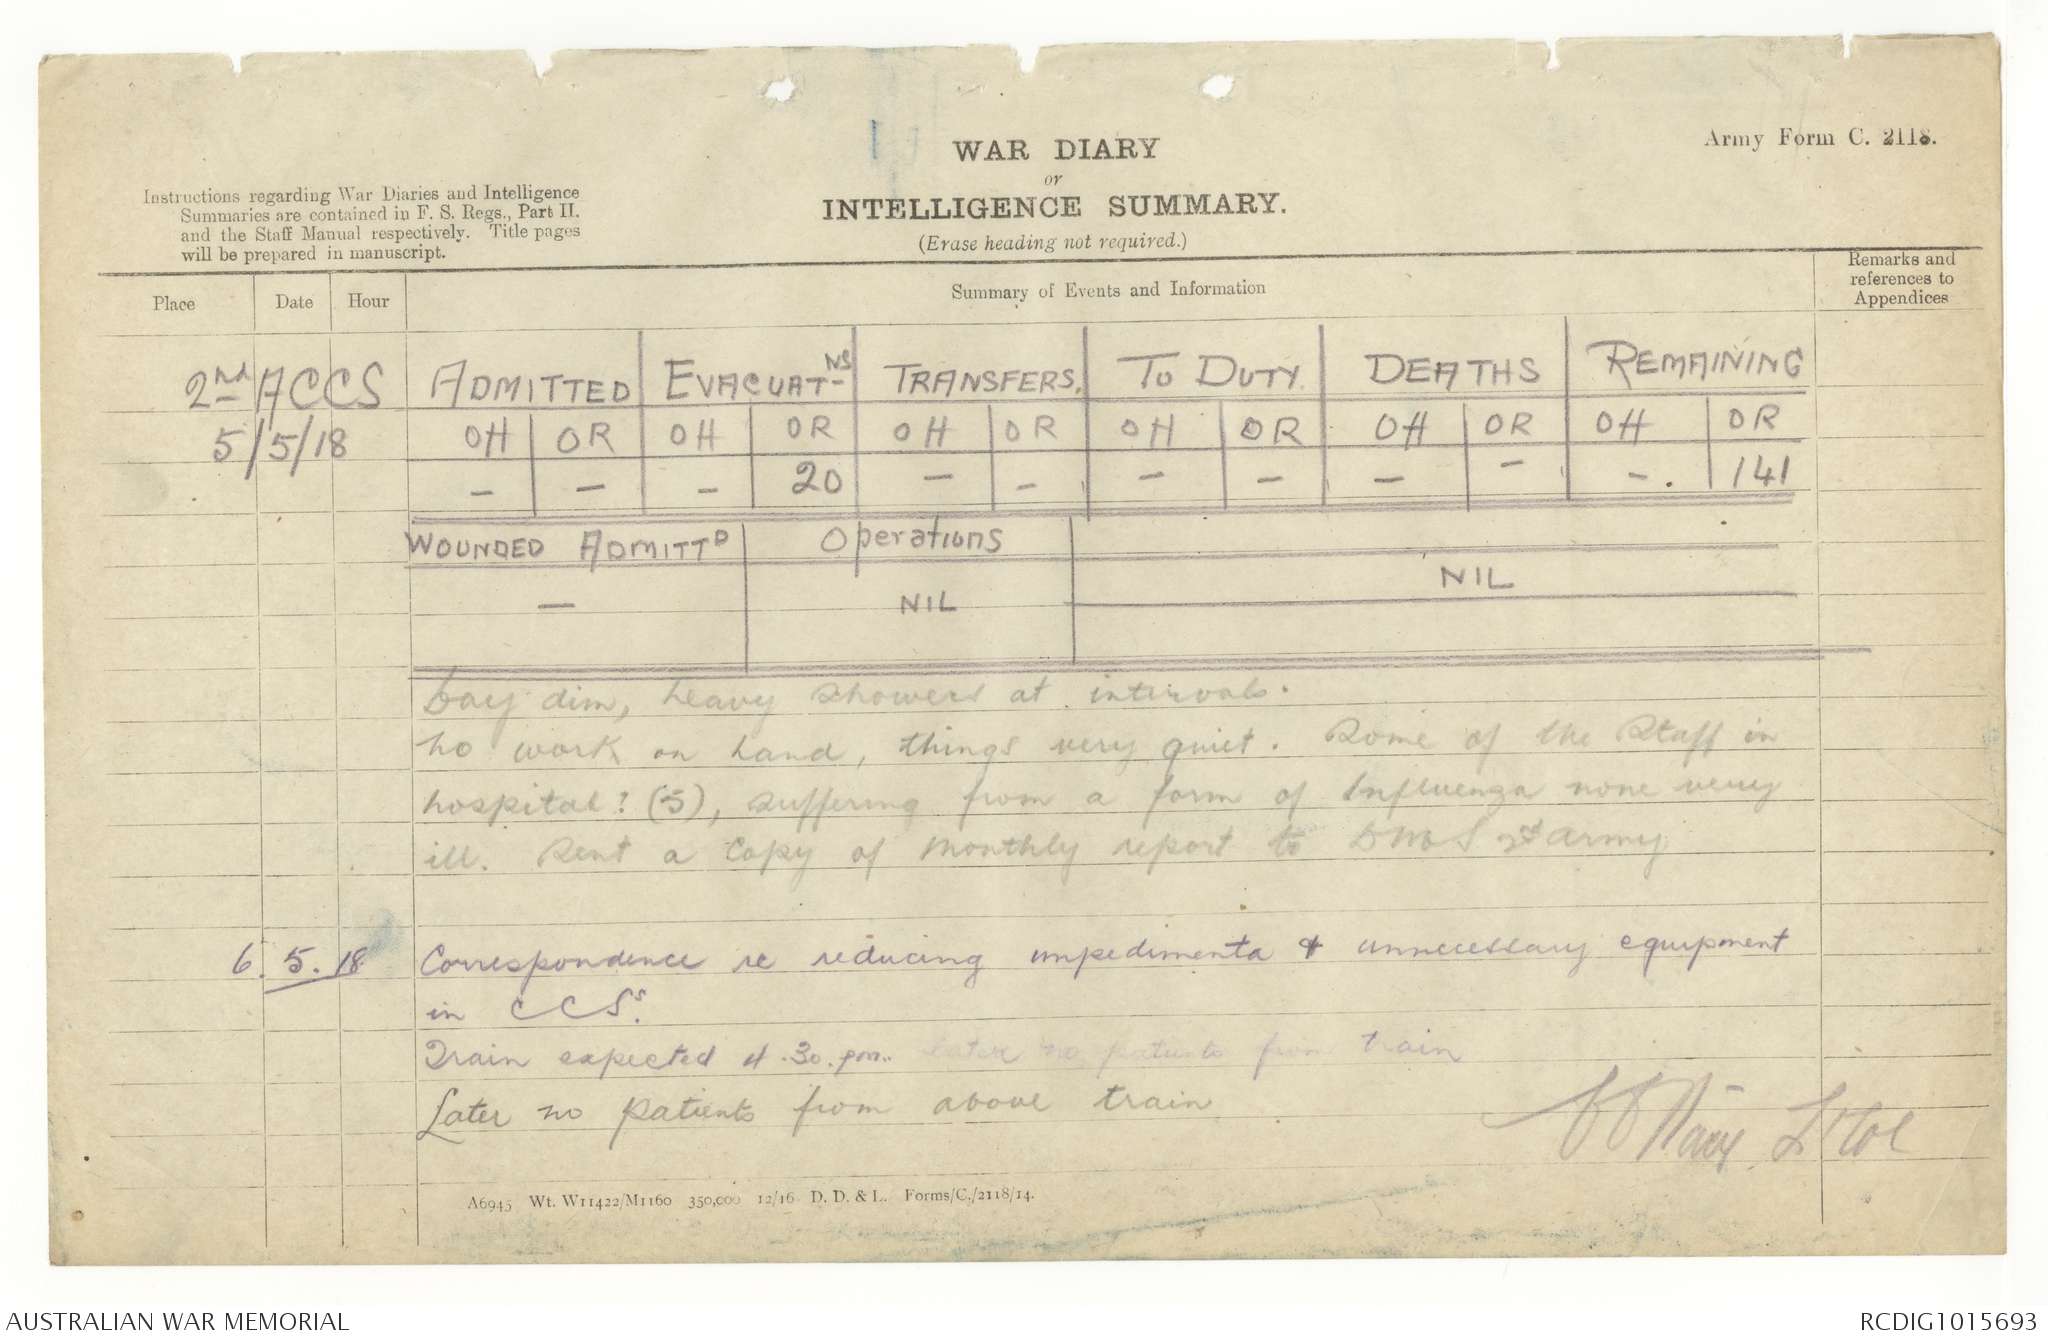 WAR DIARY
or
INTELLIGENCE SUMMARY.
(Erase heading not required.)
Army Form C. 2118.
Instructions regarding War Diaries and Intelligence
Summaries are contained in F. S. Regs., Part II.
and the Staff Manual respectively. Title pages
will be prepared in manuscript.
Place Date Hour Summary of Events and Information Remarks and references to Appendices
2nd ACCS
5/5/18
ADMITTED EVACUAT-NS TRANSFERS. TO DUTY. DEATHS REMAINING
OH OR OH OR OH OR OH OR OH OR OH OR
- - - 20 - - - - - - -. 141
WOUNDED ADMITTD Operations
NIL
- NIL
Day dim, heavy showers at intervals.
No work on hand, things very quiet. Some of the Staff in
hospital: (5), suffering from a form of Influenza none very
ill. Sent a copy of Monthly report to DMS Army
6.5.18 Correspondence re reducing impedimenta & unnecessary equipment
in CCSs.
Train expected 4.30.pm. later no patients from train
Later no patients from above train
Lt Col
A6945 Wt. W11422/M1160 350,000 12/16 D. D. & L. Forms/C./2118/14.
AUSTRALIAN WAR MEMORIAL
RCDIG1015693